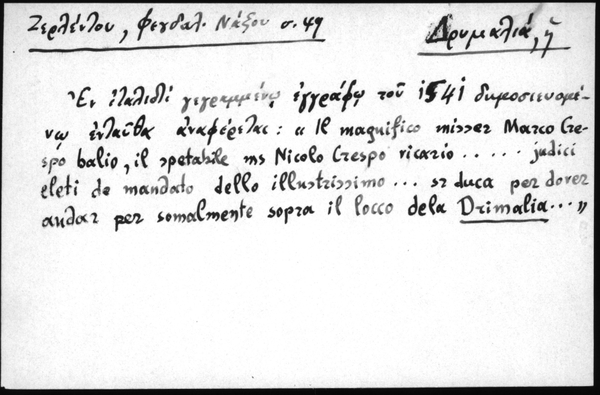 Ζερλέντου, Φεουδαλ. Νάξου σ. 49
Δρυμαλιά, ἡ
Ἐν ἰταλιστὶ γεγραμμένῳ ἐγγράφῳ τοῦ 1541 δημοσιευομέ-
νῳ ἐνταῦθα ἀναφέρεται: « Il magnifico misser Marco Cre-
spo balio, il spetabile ms Nicolo Crespo vicario ..... judici
eleti de mandato dello illustrissimo ... sr duca per dover
andar per somalmente sopra il locco dela Drimalia ... »